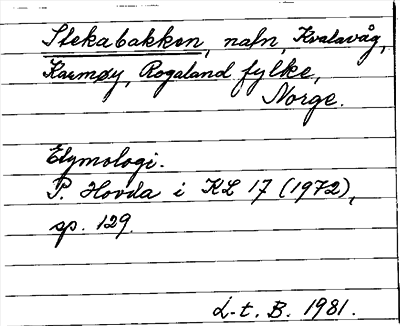 Stekabakken, natn, Kvalavåg,
Karmøy, Rogaland fylke,
Norge.
Etymologi.
P. Hovda i KL 17 (1972),
sp. 129.
L-t. B. 1981.